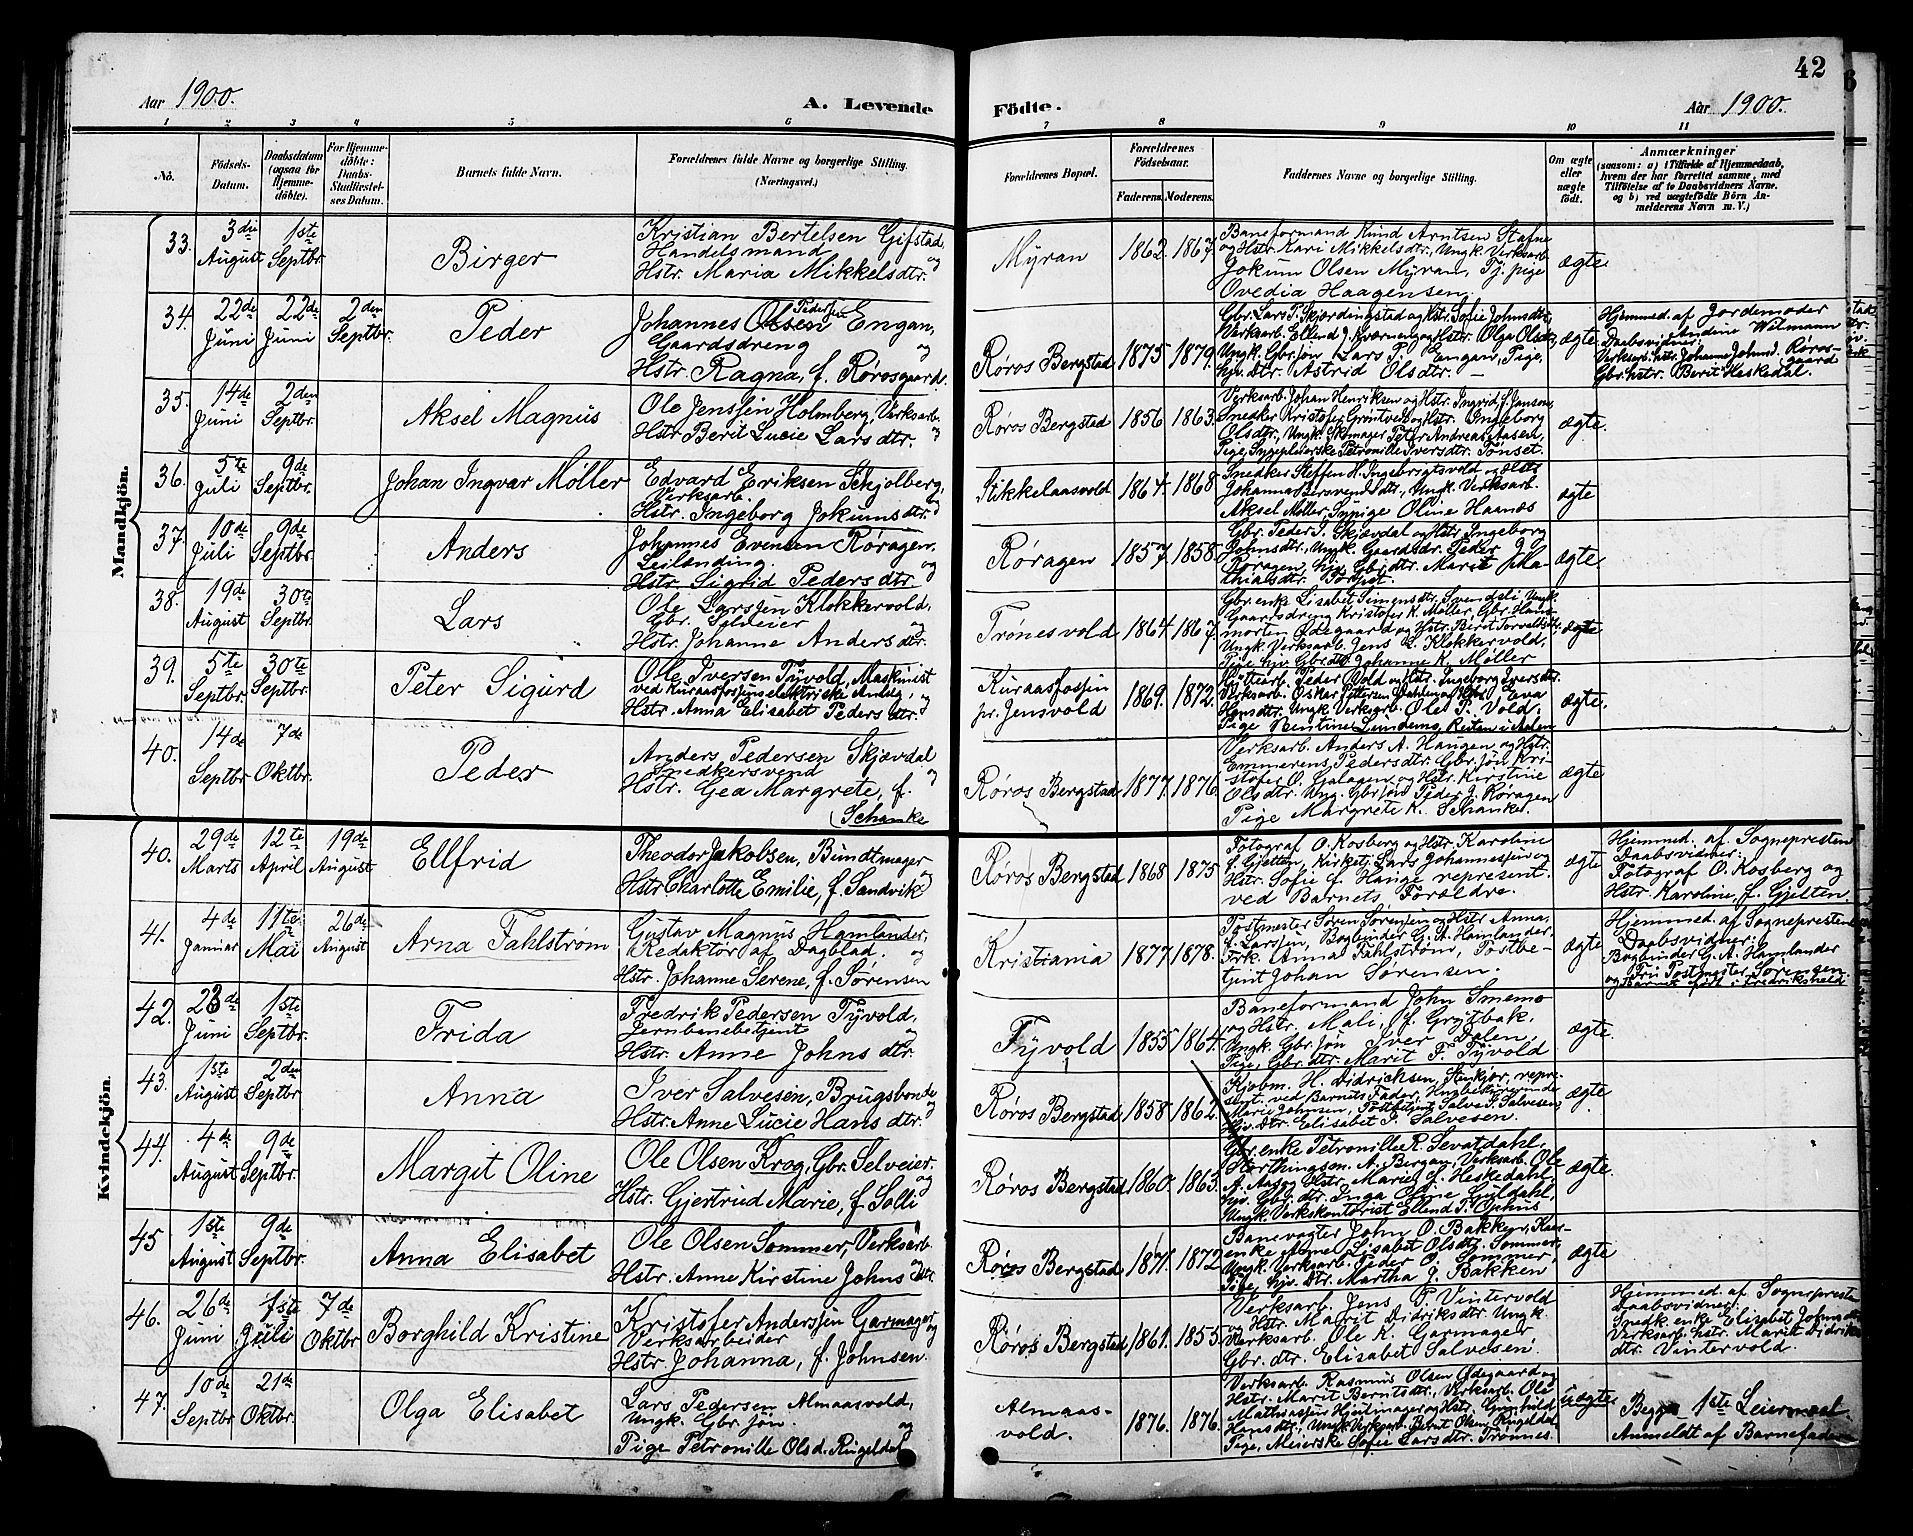 42
Aar 1900.
A. Levende Födte.
Aar 1900.
1 2 3 4 5 6 7 8 9 10 11
No.
Födsels-Datum.
Daabsdatum (ogsaa for Hjemme-döbte).
For Hjemme-döbte: Daabs-Stadfæstel-ses Datum.
Barnets fulde Navn.
Forældrenes fulde Navne og borgerlige Stilling. (Næringsvei.)
Forældrenes Bopæl.
Forældrenes Födselsaar.
Faderens. Moderens.
Faddernes Navne og borgerlige Stilling.
Om ægte eller uægte födt.
Anmærkninger
(saasom: a) i Tilfælde af Hjemmedaab, hvem der har forrettet samme, med Tilföielse af to Daabsvidners Navne. og b) ved uægtefödte Börn An-melderens Navn m. V.)
Mandkjön.
33. 3die August 1ste Septbr. Birger
Kristian Bertelsen Gifstad
Handelsmand og
Hstr. Maria Mikkelsdtr.
Myran 1862. 1867.
Baneformand Knud Arntsen Stafne
og Hstr. Kari Mikkelsdtr., Ungk. Verksarb.
Jokum Olsen Myran, Tj. pige
Ovedia Haagensen.
ægte.
34. 22de Juni 22de Juni 2den Septbr. Peder
Johannes Olsen Pedersen Engan,
Gaardsdreng og
Hstr. Ragna, f. Rörosgaard.
Röros Bergstad 1875 1879.
Gbr. Lars P. Skjærdingstad og Hstr. Sofie Johnsdtr.,
Verksarb. Erlend J. Kværneng og Hstr. Olga Olsdtr.
Ungk. Gbr. sön Lars P. Engan, Pige,
hjv. Dtr. Astrid Olsdtr.
ægte
Hjemmed. af Jordemoder
Andine Witmann
Daabsvidner:
Verksarb. hstr. Johanne Johnsd. Röros-gaard
Gbr. hstr. Berit Heskedal.
35. 14de Juni 2den Septbr. Aksel Magnus
Ole Jenssen Holmberg, Verksarb. og
Hstr. Berit Lucie Larsdtr.
Röros Bergstad 1856 1863.
Verksarb. Johan Henriksen og Hstr. Ingrid, f. Jansson,
Snedker Kristofer Grintvedt og Hstr. Ingeborg
Olsdtr., Ungk. Skomager Peter Andreas Aasen,
Pige, Petronille Iversdtr. Tönset.
ægte.
36. 5te Juli 9de Septbr. Johan Ingvar Møller
Edvard Eriksen Skjolberg,
Verksarb. og
Hstr. Ingeborg Jokumsdtr.
Stikkelaasvold 1864. 1868
Snedker Steffen H. Ingebrigtsvold og Hstr.
Johanna Bersvendsdtr., Ungk. Verksarb.
Aksel Møller, Sypige Oline Haanæs
ægte
37. 10de Juli 9de Septbr. Anders
Johannes Evensen Röragen,
Leilending. og
Hstr. Sigrid Pedersdtr.
Röragen 1857. 1858.
Gbr. Peder J. Skjævdal og Hstr. Ingeborg
Johnsdtr., Ungk. Gaardsdr. Peder J.
Röragen, hjv. Gbr. dtr. Marit Ma-
thiasdtr. Tönset.
ægte.
38. 19de August 30te Septbr. Lars
Ole Larssen Klokkervold,
Gbr. Selveier og
Hstr. Johanne Andersdtr.
Trönesvold 1864. 1867.
Gbr. enke Lisabet Simensdtr. Svendsli Ungk.
Gaardsdreng Kristofer K. Møller, Gbr. Hans-
morten Ødegaard og Hstr. Biret Torvaldsdtr.
Ungk. Verksarb. Jens L. Klokkervold,
Pige hjv. Gbr. dtr. Johanne K. Møller
ægte
39. 5te Septbr. 30te Septbr. Peter Sigurd
Ole Iversen Tyvold, Maskinist
ved Kuraasfossens elektriske Anlæg, og
Hstr. Anna Elisabet Pedersdtr.
Kuraasfossen pr. Jensvold 1869. 1872.
Hyttearb. Peder Vold og Hstr. Ingeborg Iversdtr.
Verksarb. Oskar Pettersen Dahlen og Hstr. Eva
Hansdtr. Ungk. Verksarb. Ole P. Vold.
Pige Bentine Lundemo, Reitan i Aalen
ægte.
40. 14de Septbr. 7de Oktbr. Peder
Anders Pedersen Skjævdal
Snedkersvend og
Hstr. Gea Margrete, f.
Schanke
Röros Bergstad 1877. 1876.
Verksarb. Anders A. Haugen og Hstr.
Emmerens Pedersdtr. Gbr. sön Kri-
stofer O. Galaaen og Hstr. Kirstine
Olsdtr. Ung. Gbr. sön Peder J. Röragen
Pige Margrete K. Schanke.
ægte
Kvindekjön.
40. 29de Marts 12te April 19de August Ellfrid
Theodor Jakobsen, Bundtmager og
Hstr. Charlotte Emilie, f. Sandvik
Röros Bergstad 1868 1875
Fotograf O. Kosberg og Hstr. Karoline
f. Gjelten, Kirketj. Lars Johannessen og
Hstr. Sofie f. Hauge represent.
ved Barnets Forældre.
ægte
Hjemmed. af Sognepresten
Daabsvidner:
Fotograf O. Kosberg og
Hstr. Karoline, f. Gjelten.
41. 4de Januar 11te Mai 26de August Arna Fahlström
Gustav Magnus Hamlander,
Redaktör af Dagblad. og
Hstr. Johanne Serene, f. Sörensen
Kristiania 1877. 1878.
Postmester Sören Sörensen og Hstr. Anna,
f. Larssen, Bogbinder G. A. Hamlander
Frk. Anna Fahlström, Postbe-
tjent Johan Sörensen.
ægte
Hjemmed. af Sognepresten
Daabsvidner:
Bogbinder G. A. Hamlander
og Fru Postmester Sörensen.
Barnet född i Fredrikshald
42. 23de Juni 1ste Septbr. Frida
Fredrik Pedersen Tyvold,
Jernbanebetjent og
Hstr. Anne Johnsdtr.
Tyvold 1855. 1864.
Baneformand John Smemo
og Hstr. Mali, f. Grytbak.
Ungk. Gbr. sön Iver Dalen,
Pige, Gbr. dtr. Marit F. Tyvold
ægte.
43. 1ste August 2den Septbr. Anna
Iver Salvesen, Brugsbonde og
Hstr. Anne Lucie Hansdtr.
Röros Bergstad 1858 1862.
Kjøbm. H. Didrichsen, Stenkjær, repre-
sent. ved Barnets Fader,
Marie Johnsen, Postbetjent Salve J. Salvesen,
Hjv. dtr. Elisabet J. Salvesen
ægte
44. 4de August 9de Septbr. Margit Oline
Ole Olsen Krog, Gbr. Selveier. og
Hstr. Gjertrud Marie, f. Solli
Röros Bergstad 1860. 1863.
Gbr. enke Petronille R. Sevatdahl,
Storthingsm. A. Bergan, Verksarb. Ole
A. Aas og Hstr. Marie J. Heskedahl,
hjv. Gbr. dtr. Inga Oline Guldahl,
Ungk. Verkskontorist Ellend P. Ophus
ægte.
45 1ste August 9de Septbr. Anna Elisabet
Ole Olsen Sommer, Verksarb.
Hstr. Anne Kirstine Johnsdtr.
Röros Bergstad 1871. 1872
Banevogter John O. Bakken, Kaar-
enke Anne Lisabet Olsdtr. Sommer,
Ungk. Verksarb. Peder O. Sommer,
Pige, hjv. Dtr. Martha J. Bakken
ægte
46. 26de Juni 1ste Juli 7de Oktbr Borghild Kristine
Kristofer Anderssen Garmager og
Verksarbeider
Hstr. Johanna, f. Johnsen.
Röros Bergstad 1861. 1855.
Verksarb. Jens P. Vintervold
og Hstr. Marit Didriksdtr. Ungk.
Verksarb. Ole K. Garmager,
Gbr. dtr. Elisabet Salvesen.
ægte
Hjemmed. af Sognepresten
Daabsvidner:
Snedk. enke Elisabet Johnsdtr
Verksarb. hstr. Marit Didriks
dtr. Vintervold.
47. 10de Septbr. 21de Oktbr. Olga Elisabet
Lars Pedersen Almaasvold,
Ungk. Gbr. sön. og
Pige Petronille Olsd. Rugeldal
Almaas-vold. 1876. 1876.
Verksarb. Rasmus Olsen Ødegaard og
Hstr. Marit Berntsdtr., Verksarb. Ole
Mathiassen Heilmager og Hstr. Gunhild
Hansdtr., Ungk. Verksarb. Bernt Olsen Rugeldal
Pige, Meierske Sofie Larsdtr. Trönnes.
uægte
Begges 1ste Leiermaal.
Anmeldt af Barnefaderen